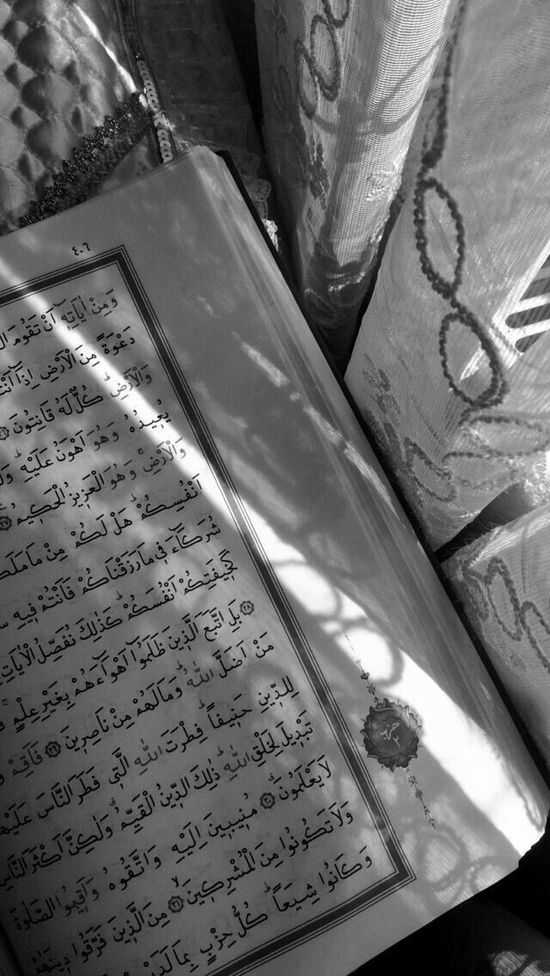 ٤٠٦
وَمِنْ اٰيَاتِه۪ٓ اَنْ تَقُومَ
دَعْوَةً مِنَ الْاَرْضِۗ اِذَٓا
وَالْاَرْضِۜ كُلٌّ لَهُ قَانِتُونَ
يُع۪يدُهُ وَهُوَ اَهْوَنُ عَلَيْهِۜ
وَالْاَرْضِۚ وَهُوَ الْعَز۪يزُ الْحَك۪يمُ ﴿٢٧﴾
اَنْفُسِكُمْۜ هَلْ لَكُمْ مِنْ مَا مَلَكَتْ
شُرَكَٓاءَ ف۪ي مَا رَزَقْنَاكُمْ فَاَنْتُمْ ف۪يهِ
كَخ۪يفَتِكُمْ اَنْفُسَكُمْۜ كَذٰلِكَ نُفَصِّلُ الْاٰيَاتِ
﴿٢٨﴾ بَلِ اتَّبَعَ الَّذ۪ينَ ظَلَمُٓوا اَهْوَٓاءَهُمْ بِغَيْرِ عِلْمٍۚ
مَنْ اَضَلَّ اللّٰهُۜ وَمَا لَهُمْ مِنْ نَاصِر۪ينَ ﴿٢٩﴾ فَاَقِمْ
لِلدّ۪ينِ حَن۪يفًاۜ فِطْرَتَ اللّٰهِ الَّت۪ي فَطَرَ النَّاسَ عَلَيْهَاۜ
تَبْد۪يلَ لِخَلْقِ اللّٰهِۜ ذٰلِكَ الدّ۪ينُ الْقَيِّمُۗ وَلٰكِنَّ اَكْثَرَ النَّاسِ
لَا يَعْلَمُونَۗ ﴿٣٠﴾ مُن۪يب۪ينَ اِلَيْهِ وَاتَّقُوهُ وَاَق۪يمُوا الصَّلٰوةَ
وَلَا تَكُونُوا مِنَ الْمُشْرِك۪ينَۙ ﴿٣١﴾ مِنَ الَّذ۪ينَ فَرَّقُوا د۪ينَهُمْ
وَكَانُوا شِيَعًاۜ كُلُّ حِزْبٍ بِمَا لَدَيْهِمْ
حزب